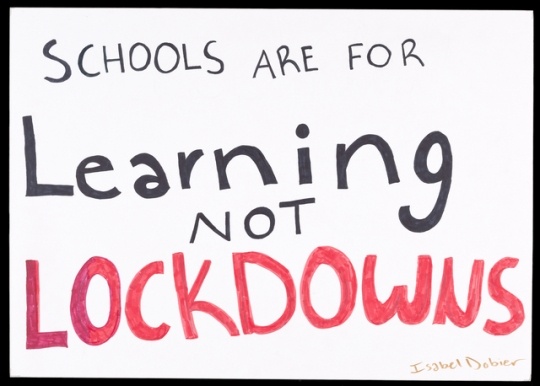 SCHOOLS ARE FOR
Learning
NOT
LOCKDOWNS
Isabel Dobier